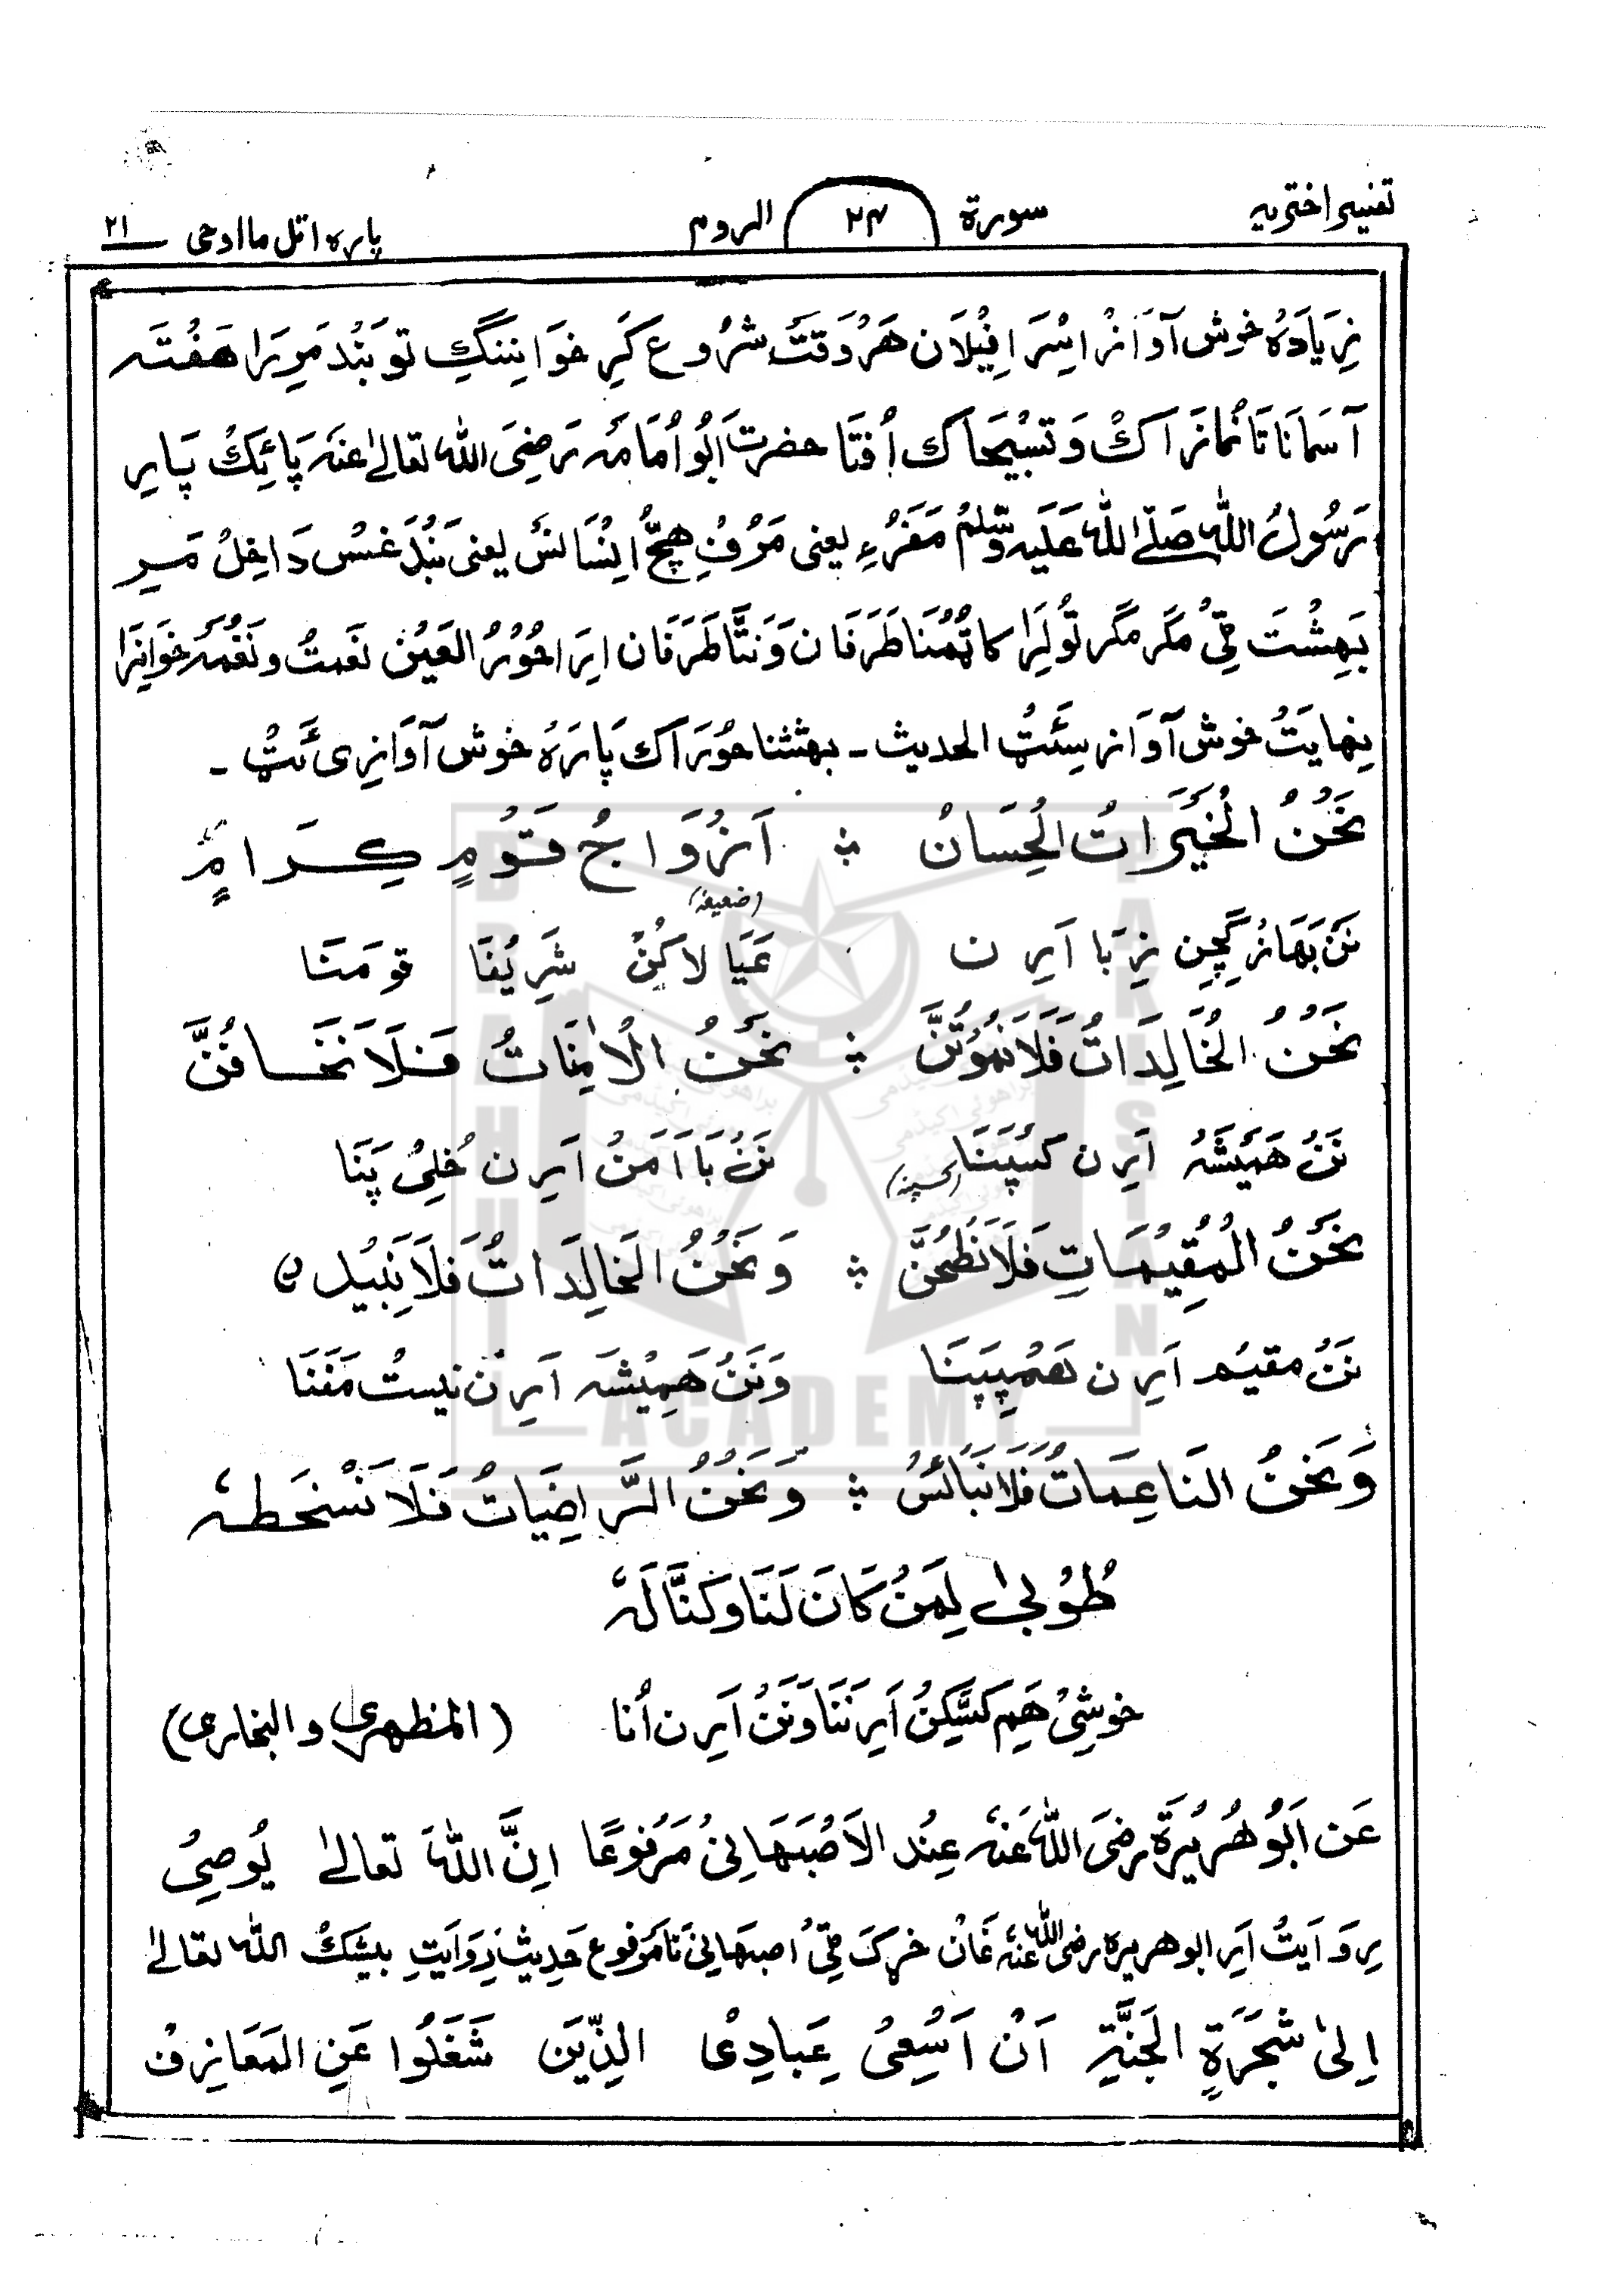 تفسیر اختریہ سورۃ ۲۴ الروم پارہ اتل ما اوحی ۲۱
زِیَادَہُ خوش آوَازْ اِسْرَافِیْلَان ھَرْوَقتَتْ شُرُوع کَرِ خوَانِنگِ تو بَنْد مَرِیرَا ھَفْتَہ
آسمَانَاتَا نُمازَ اَکْ وَ تَسْبِیْحَاک اُفتَا حضرت اَبُو اُمَامَہ رَضِیَ اللّٰہ تعالیٰ عَنْہ پَائِکْ پَارِ
رَسُولُ اللّٰہ صَلَّے اللّٰہ عَلَیہ وَسَّلمُ مَفَرْءِ یعنی مَرْفِ ھِچُّ اِنْسَانَسْ یعنی بَنْدَغسْ دَاخِلْ مَرِ
بَہِشْتَ ٹِیْ مَگر مگر تُولِرَا کاٹُمْنَا طَرَفَان وَنَتَّا طَرَفَان اِیرَا حُوْرُ العَیْنْ نَعمتْ و نَغْمَہ خوَانِرَا
نِھایَتْ خوش آوَاز سِئَتْ الحدیث ۔ بہشتنا حُورَاک پَارَہْ خوش آوَازِی ئَٹْ ۔
نَحْنُ الْخَیْرَاتُ الْحِسَانْ ؞ اَزْوَاجُ قَوْمٍ کِرَامٍ
نَنْ بَھَازْ گِچِن زِیبَا اَیرِن عَیَالاکَنْ (ضعیفہ) شَرِیْفَا قومَتَا
نَحْنُ الْخَالِدَاتُ فَلَا نَمُوْتُنَّ ؞ نَحْنُ الْاٰمِنَاتُ فَلَا نَخَافُنَّ
نَنْ ھَمِیْشَہْ اَیرِن کَسْپَنَا (کسپنہ) نَنْ بَا اَمَنْ اَیرِن خُلِیْ پَنَا
نَحْنُ الْمُقِیْمَاتِ فَلَا نَظْعَنَّ ؞ وَنَحْنُ الْخَالِدَاتُ فَلَا نَبِیْدِنَ
نَنْ مقیمْ اَیرِن ھَمْپِپَنَا وَنَنْ ھَمِیْشَہ اَیرِن نیستْ مَفَنَا
وَنَحْنُ النَاعِمَاتُ فَلَا نَبَائَسُ ؞ وَنَحْنُ الرَّاضِیَاتُ فَلَا نَسْخَطہ
طُوْبیٰ لِمَنْ کَانَ لَنَا وَکُنَّا لَہٗ
خوشِیْ ھَمِ کَسَّکِنْ اَیرِنَنَا وَنَنْ اَیرِن اُنا (المظھری والبخاری)
عَن اَبُوْ ھُرَیْرَۃ رضی اللّٰہ عَنْہ عِنْد الاَصْبَہَانِیْ مَرْفُوعًا اِنَّ اللّٰہَ تعالیٰ یُوصِیْ
رِوَایَتْ اَیرِ ابوھریرہ رضی اللّٰہ عَنْہ غَانْ خرکَ ٹِیْ اصبھَانِیْ نَا مَرفوع حَدِیث رِوَایَتِ بیشَکْ اللّٰہ تعالےٰ
اِلیٰ شَجَرَۃِ الْجَنَّۃِ اَنْ اَسْعِیْ عِبَادِیْ الذِّیَن شَغَلُوا عَنِ الْمَعَازِفْ
BRAHUI ACADEMY PAKISTAN